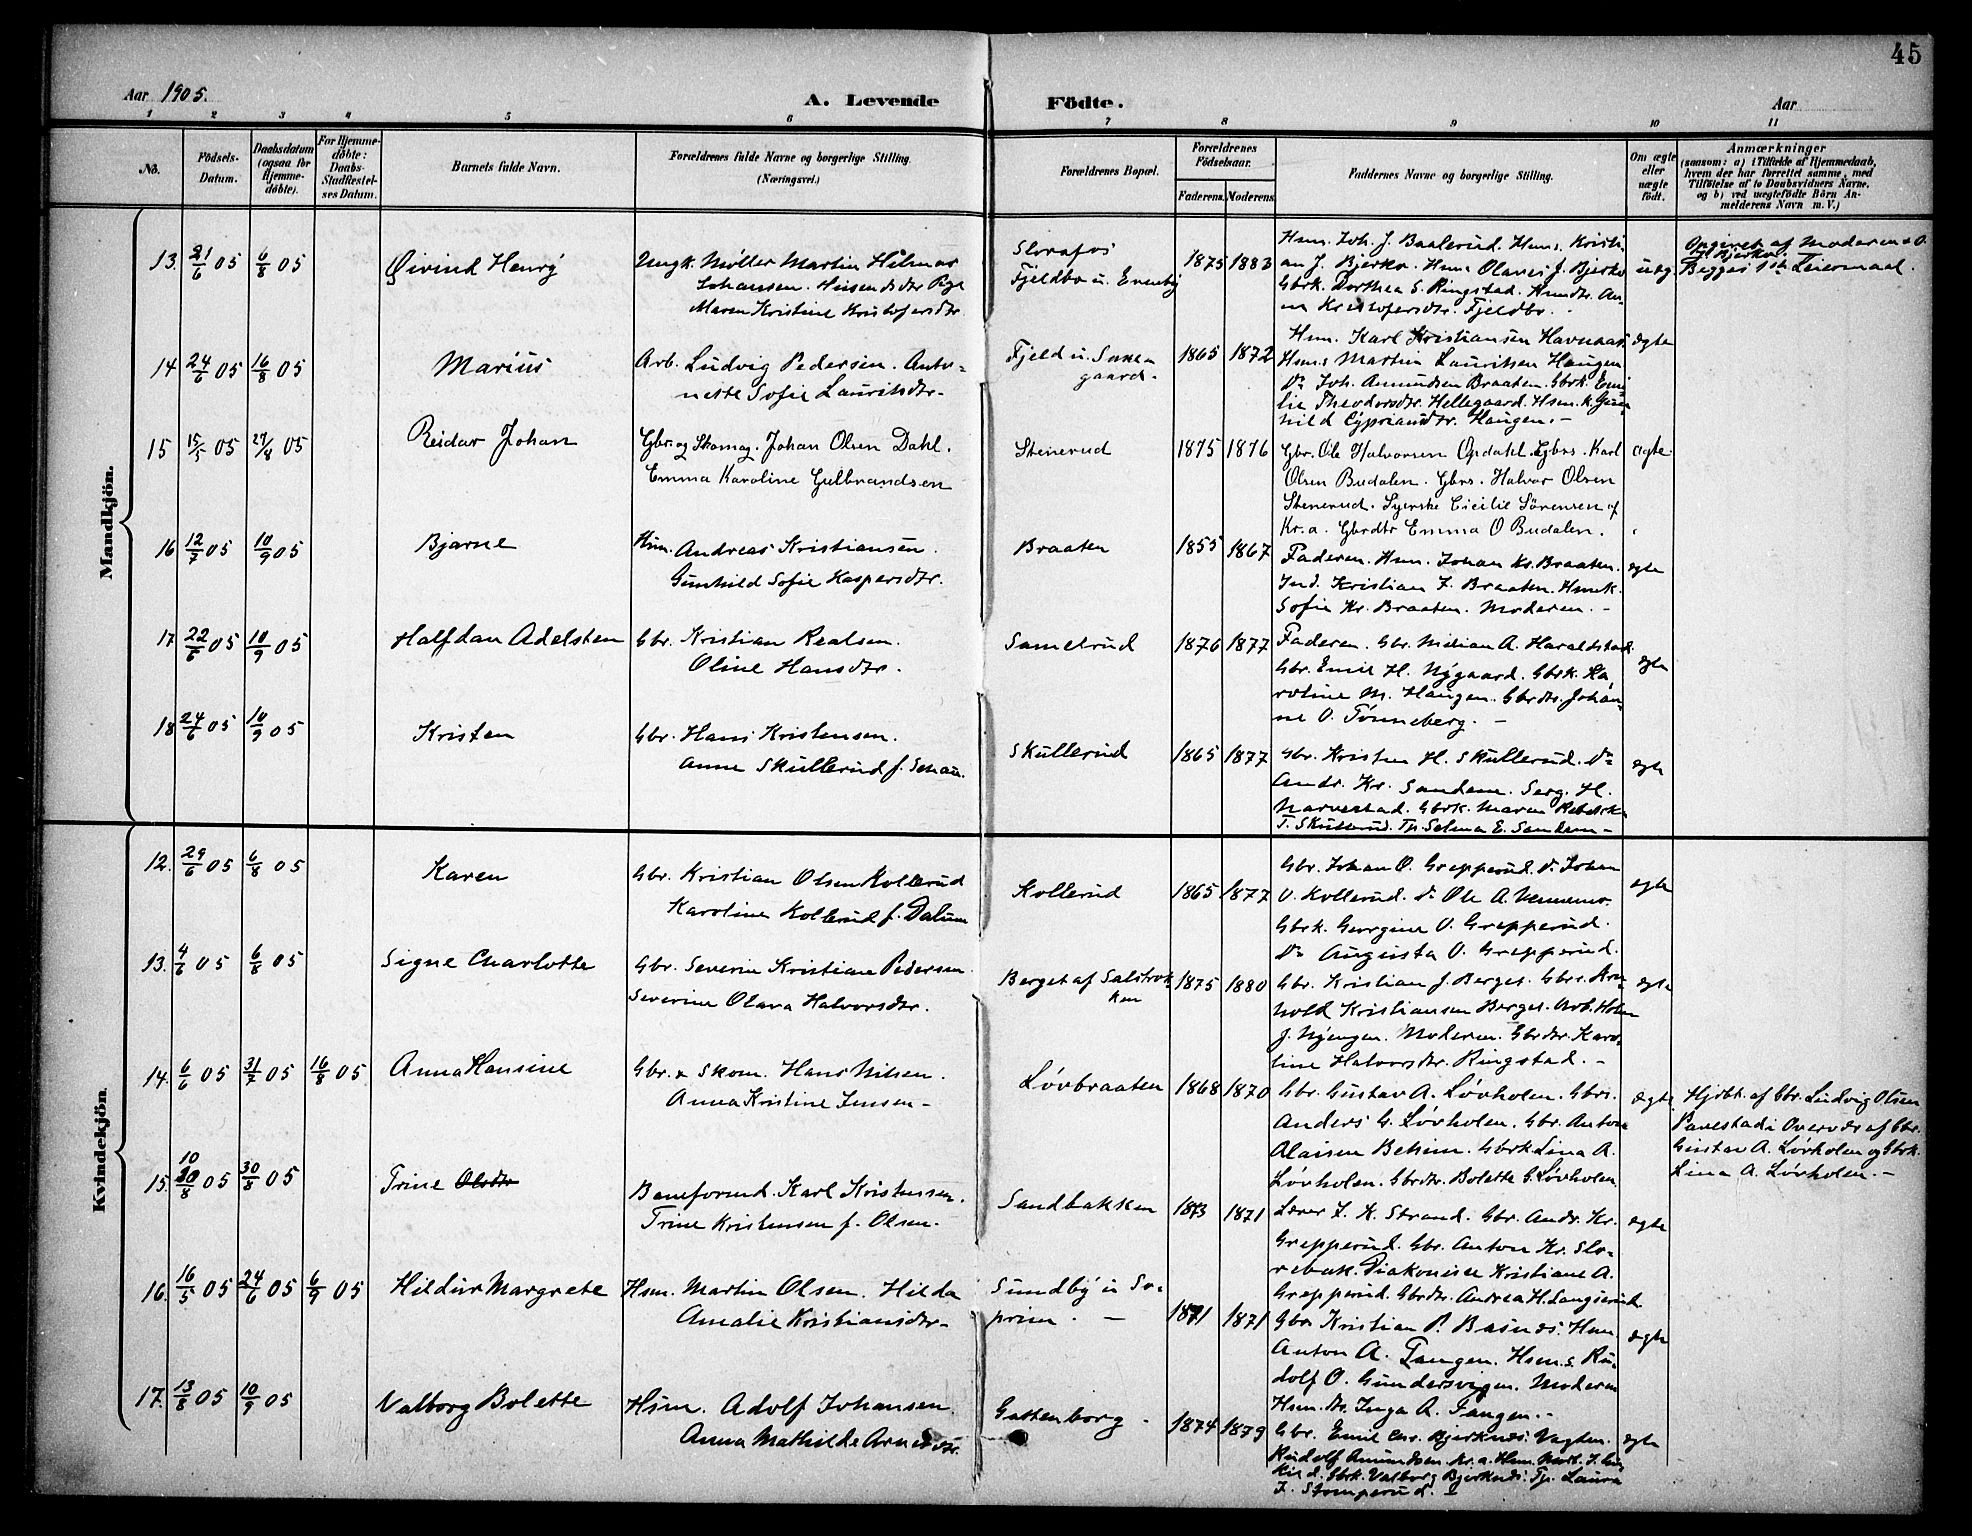 45
Aar 1905.
A. Levende Födte.
Aar
1 2 3 4 5 6 7 8 9 10 11
No.
Födsels-
Datum.
Daabsdatum
(ogsaa for
Hjemme-
döbte).
For Hjemme-
döbte:
Daabs-
Stadfæstel-
ses Datum.
Barnets fulde Navn.
Forældrenes fulde Navne og borgerlige Stilling.
(Næringsvei.)
Forældrenes Bopæl.
Forældrenes
Födselsaar.
Faderens. Moderens.
Faddernes Navne og borgerlige Stilling.
Om ægte
eller
uægte
født.
Anmærkninger
(saasom: a) i Tilfælde af Hjemmedaab,
hvem der har forrettet samme, med
Tilföielse af to Daabsvidners Navne,
og b) ved uægtefödte Börn An-
melderens Navn m. V.)
Mandkjön.
13. 21/6 05 6/8 05
Øivind Henry
Ungk. Møller Martin Hilmar
Johansen. Pige
Maren Kristine Kristofersdtr.
Slorafos
Fjeldbo u. Eveneby
1875 1883
Hsm. Joh. J. Baalerud. Hsms. Kristi-
an J. Bjerke. Hsms. Olaves J. Bjerke
Gbrk. Dorthea S. Ringstad. Hsmdtr. An-
na Kristofersdtr. Fjeldbo. -
uæg.
Opgivet af Moderen & O.
Bjerke.
Begges 1ste Leiermaal.
14 24/6 05 16/8 05
Marius
Arb. Ludvig Pedersen. Anto-
nette Sofie Lauritsdtr.
Fjeld u. Sane-
gaard.
1865 1872
Hsm. Karl Kristiansen Havnaas
Hsm.s Martin Lauritsen Haugen
Do Joh. Amundsen Braaten. Gbrk. Emi-
lie Theodorsdtr. Hellegaard. Hsm.k. Gun-
hild Cypriandtr. Haugen. -
ægte
15 15/5 05 27/8 05
Reidar Johan
Gbr. og Skomag. Johan Olsen Dahl.
Emma Karoline Gulbrandsen
Stenerud
1875 1876
Gbr. Ole Halvorsen Opdahl. Gbrs. Karl
Olsen Budalen. Gbrs. Halvor Olsen
Stenerud. Syerske Cicilie Sörensen af
Kr.a. Gbrdtr Emma O Budalen.
ægte
16 12/7 05 10/9 05
Bjarne
Hsm. Andreas Kristiansen.
Gunhild Sofie Kaspersdtr.
Braaten
1855 1867
Faderen. Hsm. Johan Kr. Braaten.
Ind. Kristian F. Braaten. Hsmk.
Sofie Kr. Braaten. Moderen. -
ægte
17 22/6 05 10/9 05
Halfdan Adelsten
Gbr. Kristian Realsen.
Oline Hansdtr.
Sametrud
1876 1877
Faderen. Gbr. Milian A. Haraldstad.
Gbr. Emil H. Nygaard. Gbrk. Ka-
roline M. Haugen. Gbrdtr. Johan-
ne O. Tønneberg. -
ægte
18 24/6 05 10/9 05
Kristen
Gbr. Hans Kristensen.
Anne Skullerud f. Schau.
Skullerud
1865 1877
Gbr. Kristen H. Skullerud. Do
Andr. Kr. Sandem. Serg. H.
Narvestad. Gbrk. Maren Rebekka
T. Skullerud. Tp. Selma E. Sandem -
ægte
Kvindekjön
12. 29/6 05 6/8 05
Karen
Gbr. Kristian Olsen Kollerud
Karoline Kollerud f. Dalum
Kollerud
1865 1877
Gbr. Johan O. Grepperud. Do Johan
O. Kollerud. Do Ole A. Nennemo.
Gbrk. Georgine O. Grepperud.
Do Augusta O. Grepperud.
ægte
13. 4/6 05 6/8 05
Signe Charlotte
Gbr. Severin Kristian Pedersen.
Severine Olava Halvorsdtr.
Berget af Salstrok-
ken
1875 1880
Gbr. Kristian J. Berget. Gbrs. Arn-
hold Kristiansen Berget. Arb. Holm
J. Nyengen. Moderen. Gbrdtr. Karo-
line Halvorsdtr. Ringstad. -
ægte
14. 6/6 05 31/7 05 16/8 05
Anna Hansine
Gbr. & Skom. Hans Nilsen.
Anna Kristine Jensen -
Løvbraaten
1868 1870
Gbr. Gustav A. Løvholen. Gbrs.
Anders G. Løvholen. Gbr. Anton
Alaisen Behim. Gbrk Lina A.
Løvholen. Gbrdtr. Bolette G. Løvholen
ægte
Hjdbt. af Gbr. Ludvig Olsen
Pavestad i Overvær af Gbr.
Gustav A. Løvholen og Gbrk.
Lina A. Løvholen. -
15. 10/8 05 30/8 05
Trine Olsdtr
Baneformd. Karl Kristensen.
Trine Kristensen f. Olsen.
Sandbakken
1873 1871
Lærer F. K. Strand. Gbr. Andr. Kr.
Grepperud. Gbr. Anton Kr. Slo-
rebak. Diakonisse Kristiane A.
Grepperud. Gbrdtr. Andrea H. Langserud
ægte
16. 16/5 05 24/6 05 6/9 05
Hildur Margrete
Hsm. Martin Olsen. Hilda
Amalie Kristiansdtr-
Sundby u So-
prim. -
1871 1871
Gbr Kristian P. Basnes. Hsm.
Anton A. Tangen. Hsm.s. Ru-
dolf O. Gundersvigen. Moderen
Hsm. dtr. Inga A. Tangen. -
ægte
17. 13/8 05 10/9 05
Valborg Bolette
Hsm. Adolf Johansen
Anna Mathilde Arnesdtr.
Guttenborg -
1874 1879
Gbr. Emil Chr. Bjerknes. Vagtm.
Rudolf Amundsen Kr.a. Hsm. Mart. J.
Gbrk. Valborg Bjerknes. Tp. Laura
F. Stomperud.
ægte